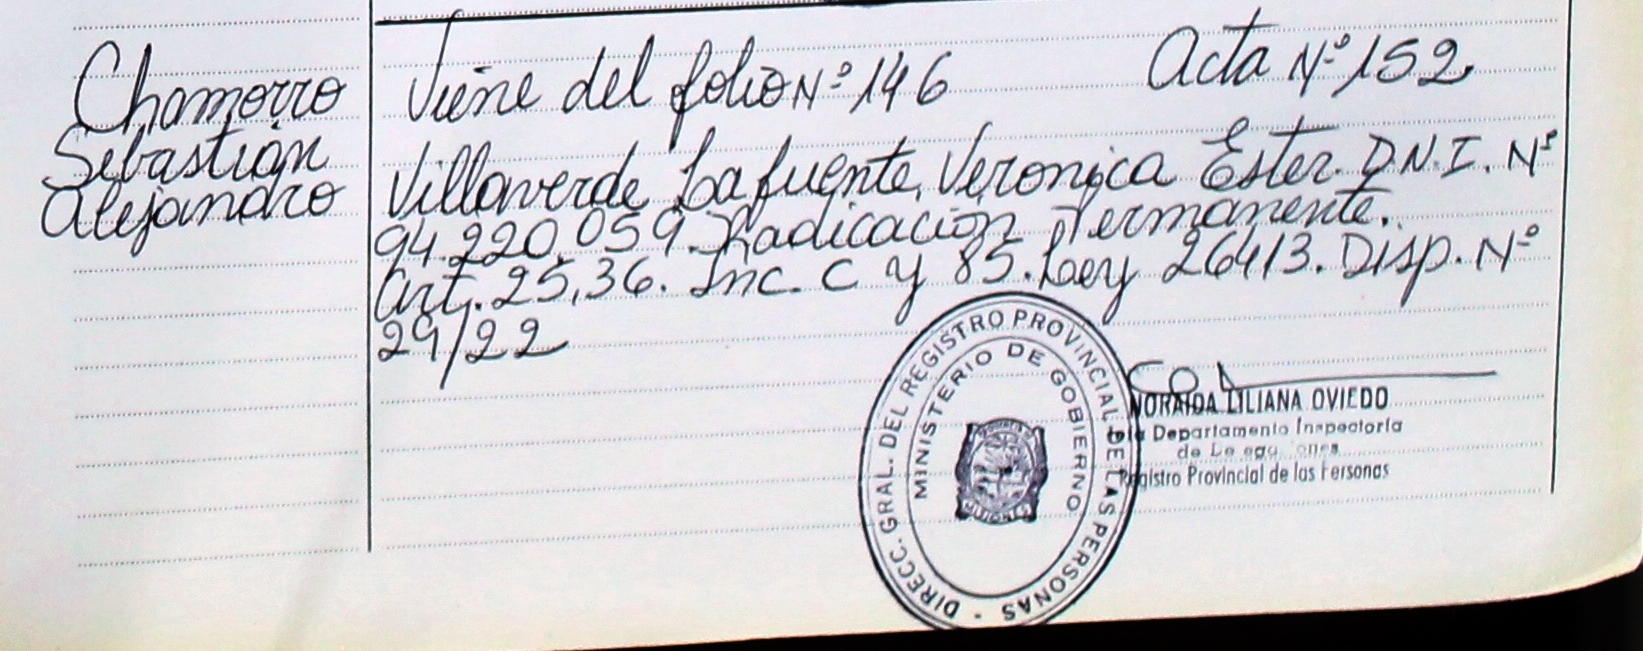 Chamorro
Sebastián
Alejandro
Viene del folio Nº 146 Acta Nº 152
Villaverde Lafuente, Veronica Ester. D.N.I. Nº
94.220.059. Radicación Permanente.
Art. 25, 36. Inc. C y 85. Ley 26413. Disp. Nº
29/22
DIRECC. GRAL. DEL REGISTRO PROVINCIAL DE LAS PERSONAS -
MINISTERIO DE GOBIERNO
MISIONES
NORAIDA LILIANA OVIEDO
Departamento Inspectoría
de
Registro Provincial de las Personas